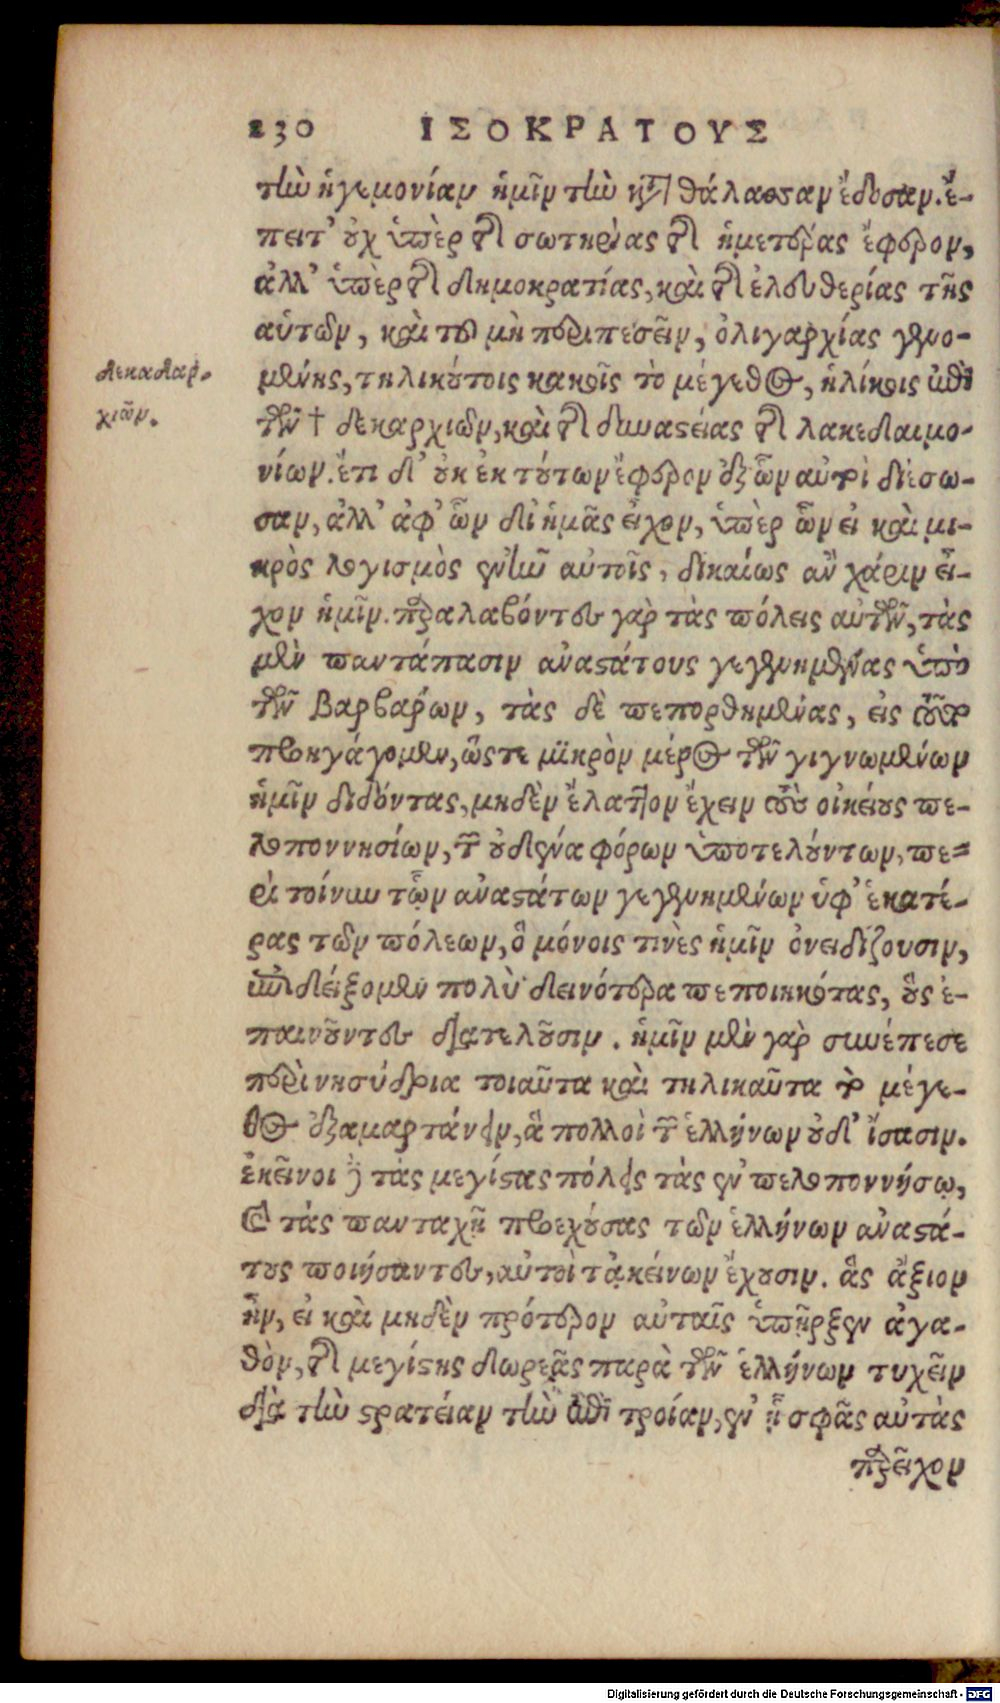 230 ΙΣΟΚΡΑΤΟΥΣ
τὴν ἡγεμονίαν ἡμῖν τὴν κατὰ θάλασσαν ἔδοσαν. ἔ-
πειτ' οὐχ ὑπὲρ τῆς σωτηρίας τῆς ἡμετέρας ἔφερον,
ἀλλ' ὑπὲρ τῆς δημοκρατίας, καὶ τῆς ἐλευθερίας τῆς
αὑτῶν, καὶ τοῦ μὴ περιπεσεῖν, ὀλιγαρχίας γενο-
μένης, τηλικούτοις κακοῖς τὸ μέγεθος, ἡλίκοις ἐπὶ
τῶν † δεκαρχιῶν, καὶ τῆς δυναστείας τῆς λακεδαιμο-
νίων. ἔτι δ' οὐκ ἐκ τούτων ἔφερον ἐξ ὧν αὐτοὶ διέσω-
σαν, ἀλλ' ἀφ' ὧν δι' ἡμᾶς εἶχον, ὑπὲρ ὧν εἰ καὶ μι-
κρὸς λογισμὸς ἐνῆν αὐτοῖς, δικαίως ἂν χάριν εἶ-
χον ἡμῖν. παραλαβόντες γὰρ τὰς πόλεις αὐτῶν, τὰς
μὲν παντάπασιν ἀναστάτους γεγενημένας ὑπὸ
τῶν βαρβάρων, τὰς δὲ πεπορθημένας, εἰς τοῦτο
προηγάγομεν, ὥστε μικρὸν μέρος τῶν γιγνωμένων
ἡμῖν διδόντας, μηδὲν ἔλαττον ἔχειν τοὺς οἰκείους πε-
λοποννησίων, τῶν οὐδένα φόρων ὑποτελούντων, πε-
ρὶ τοίνυν τῶν ἀναστάτων γεγενημένων ὑφ' ἑκατέ-
ρας τῶν πόλεων, ὃ μόνοις τινὲς ἡμῖν ὀνειδίζουσιν,
ἐπιδείξομεν πολὺ δεινότερα πεποιηκότας, οὓς ἐ-
παινοῦντες διατελοῦσιν. ἡμῖν μὲν γὰρ συνέπεσε
περὶ νησύδρια τοιαῦτα καὶ τηλικαῦτα τὸ μέγε-
θος ἐξαμαρτάνειν, ἃ πολλοὶ τῶν ἑλλήνων οὐδ' ἴσασιν.
ἐκεῖνοι δὲ τὰς μεγίστας πόλεις τὰς ἐν πελοποννήσῳ,
καὶ τὰς πανταχῆ προεχούσας τῶν ἑλλήνων ἀναστά-
τους ποιήσαντες, αὐτοὶ τἀκείνων ἔχουσιν. ἃς ἄξιον
ἦν, εἰ καὶ μηδὲν πρότερον αὐταῖς ὑπῆρξεν ἀγα-
θὸν, τῆς μεγίστης δωρεᾶς παρὰ τῶν ἑλλήνων τυχεῖν
διὰ τὴν στρατείαν τὴν ἐπὶ τροίαν, ἐν ᾗ σφᾶς αὐτὰς
παρεῖχον
δεκαδαρ-
χιῶν.
Digitalisierung gefördert durch die Deutsche Forschungsgemeinschaft - DFG